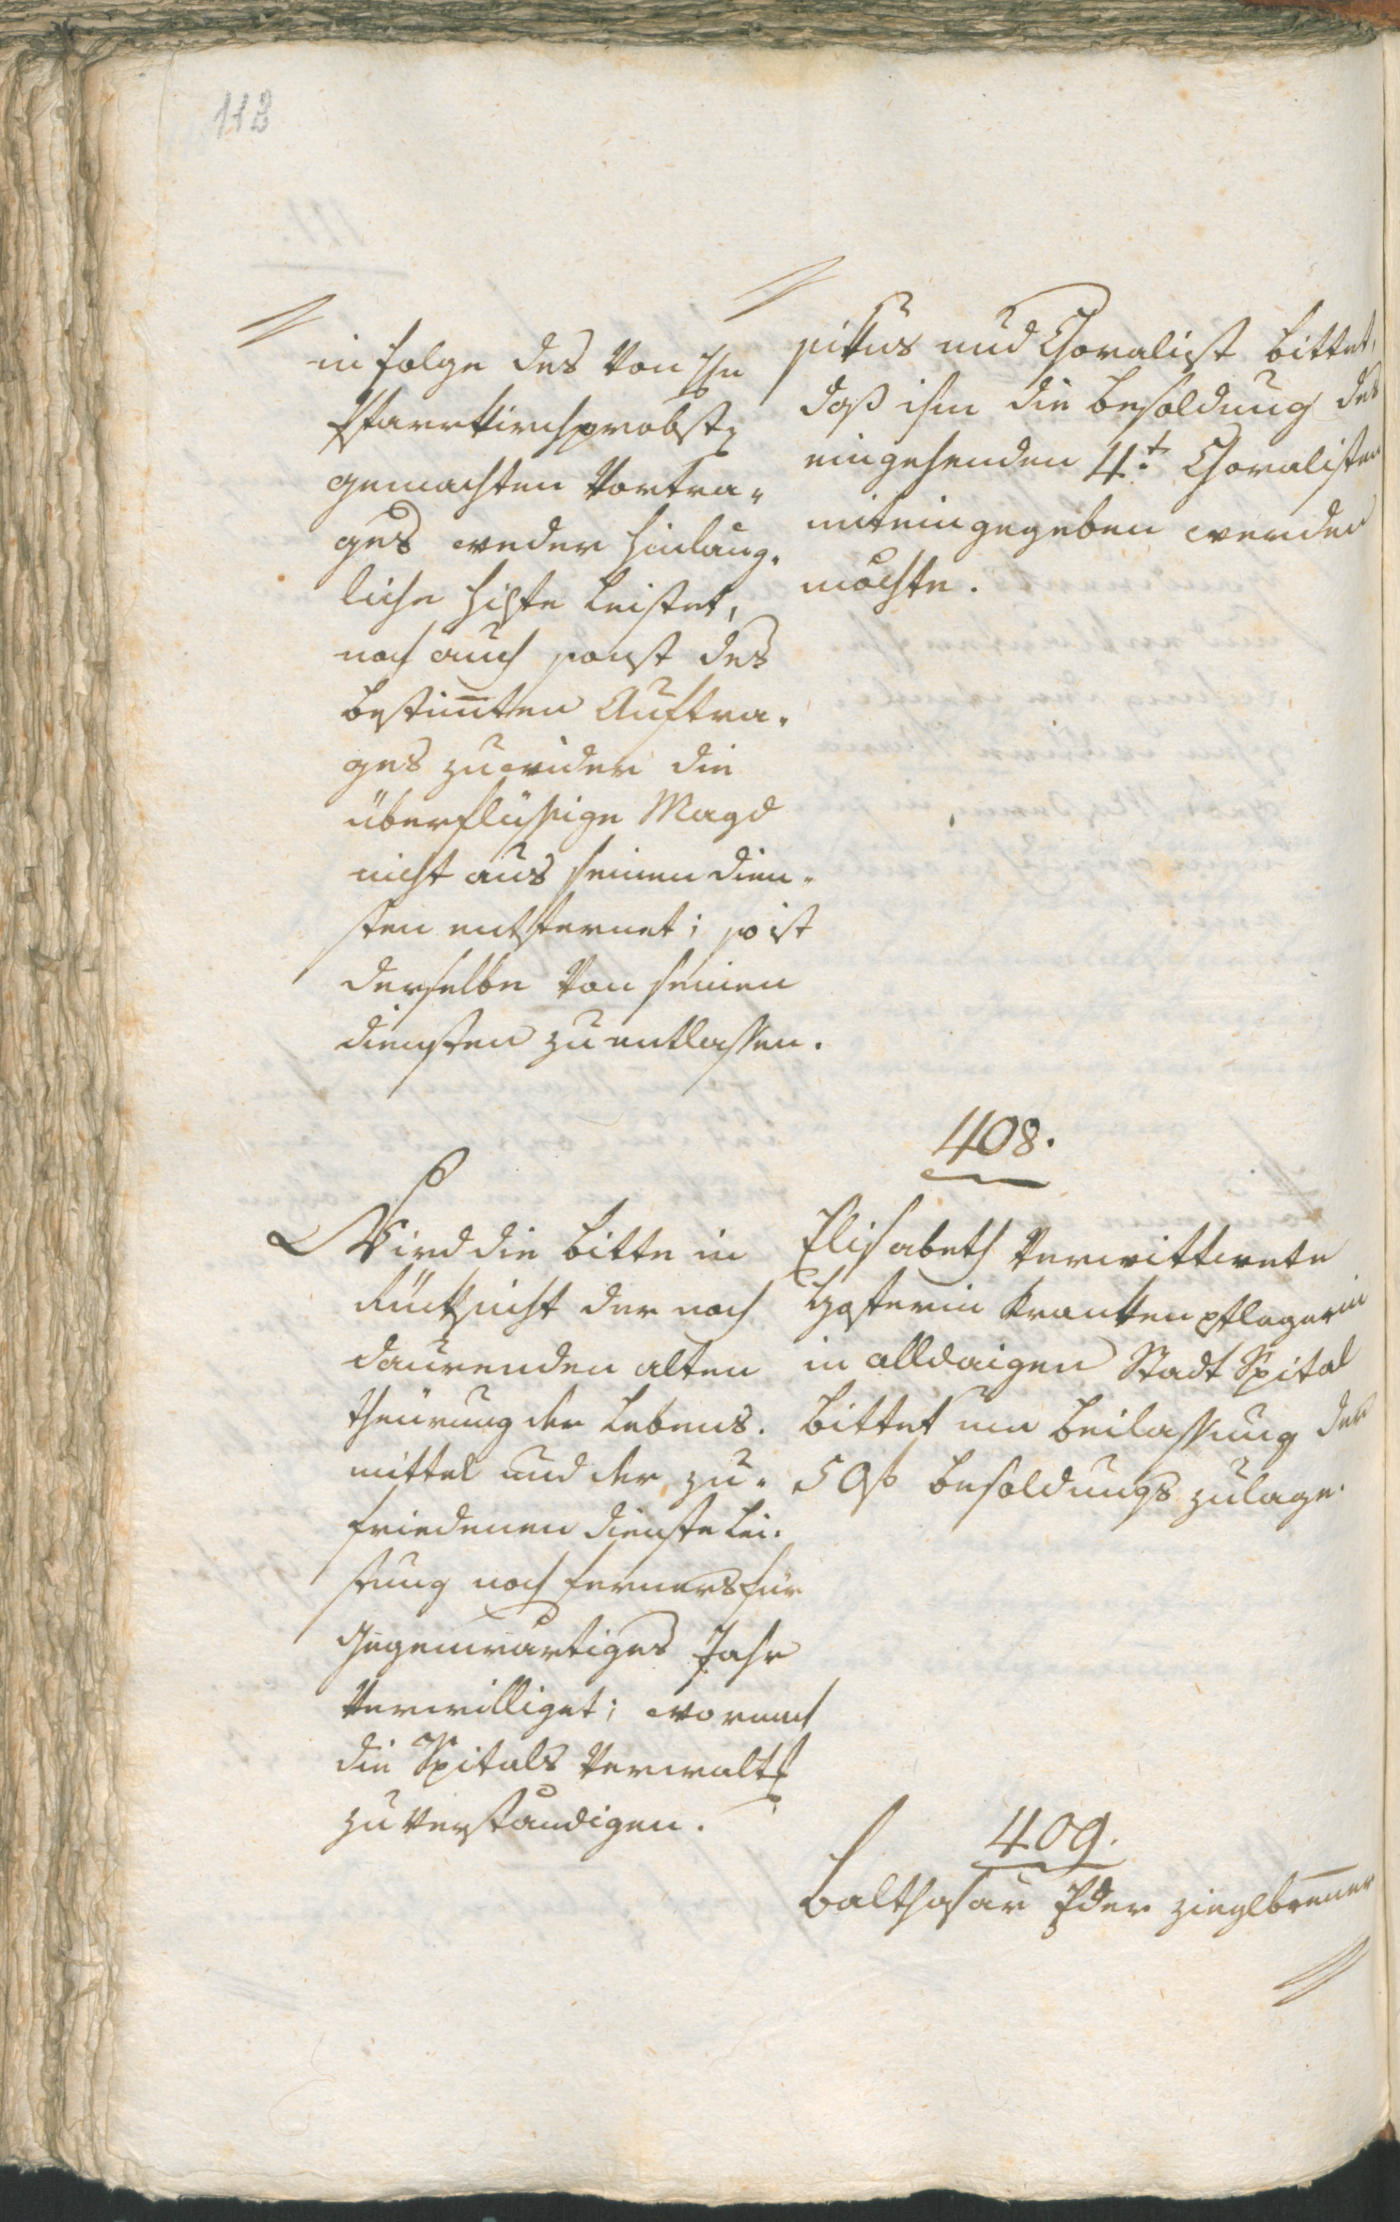 112
in folge des von Hn
Pfarrkirchprobst
gemachten Vortra„
ges weder hinläng„
liche Hilfe leistet,
noch auch sonst des
bestim̄ten Auftra„
ges zuwider die
überflüßige Magd
nicht aus seinen Dien„
sten entfernet; so ist
derselbe von seinen
diensten zu entlassen.
Wird die bitte in
Rücksicht der noch
daurenden alten
theürung der Lebens„
mittel und der zu„
friedenen dienstelei„
stung noch ferners für
gegenwärtiges Jahr
verwilliget; wornach
die Spitals Verwaltg
zuverständigen.
und Choralist bittet,
daß ihm die besoldung des
eingehenden 4t Choralisten
miteingegeben werden
möchte.
408.
Elisabeth verwittwete
Krankenpflegerin
in alldaigen Stadt Spital
bittet um beilassung der
50 f besoldungs zulage.
409.
Balthasar Eder zieglbrenner